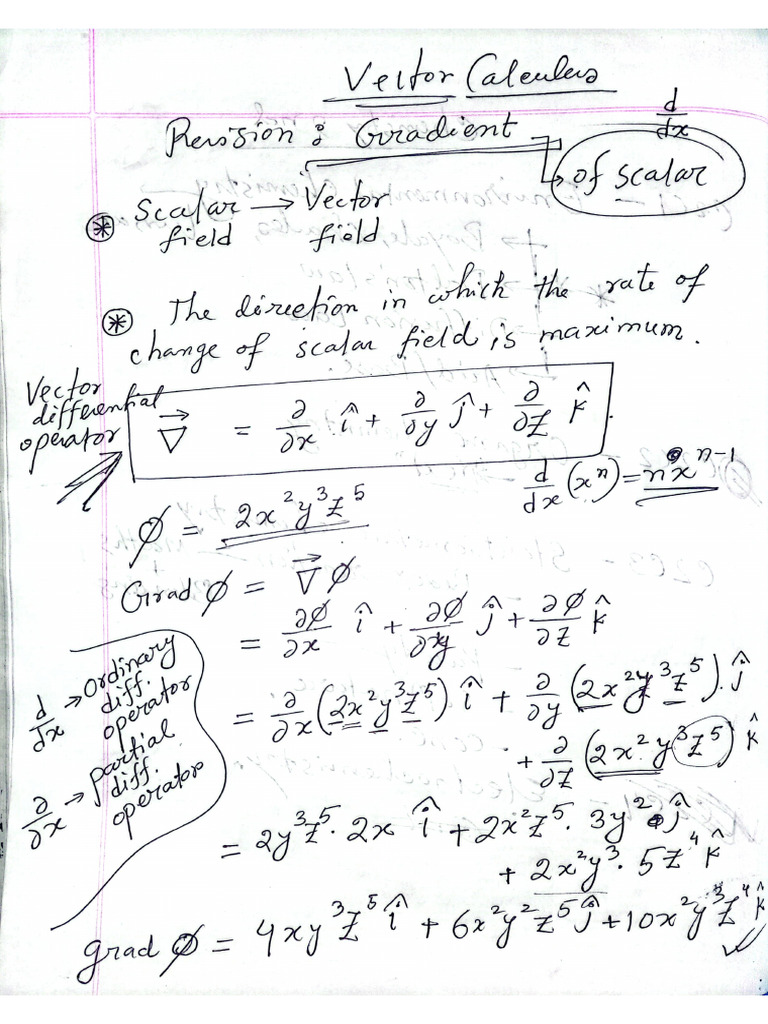 Vector Calculus
Revision : Gradient → of scalar
d/dx
⊛ Scalar field → Vector field
⊛ The direction in which the rate of
change of scalar field is maximum.
Vector differential operator
∇⃗ = ∂/∂x î + ∂/∂y ĵ + ∂/∂z k̂.
d/dx (xⁿ) = nxⁿ⁻¹
ϕ = 2x²y³z⁵
Grad ϕ = ∇⃗ϕ
= ∂ϕ/∂x î + ∂ϕ/∂y ĵ + ∂ϕ/∂z k̂
d/dx → Ordinary diff. operator
∂/∂x → partial diff. operator
= ∂/∂x (2x²y³z⁵) î + ∂/∂y (2x²y³z⁵).ĵ
+ ∂/∂z (2x²y³z⁵) k̂
= 2y³z⁵.2x î + 2x²z⁵.3y² ĵ
+ 2x²y³.5z⁴ k̂
grad ϕ = 4xy³z⁵ î + 6x²y²z⁵ ĵ + 10x²y³z⁴ k̂